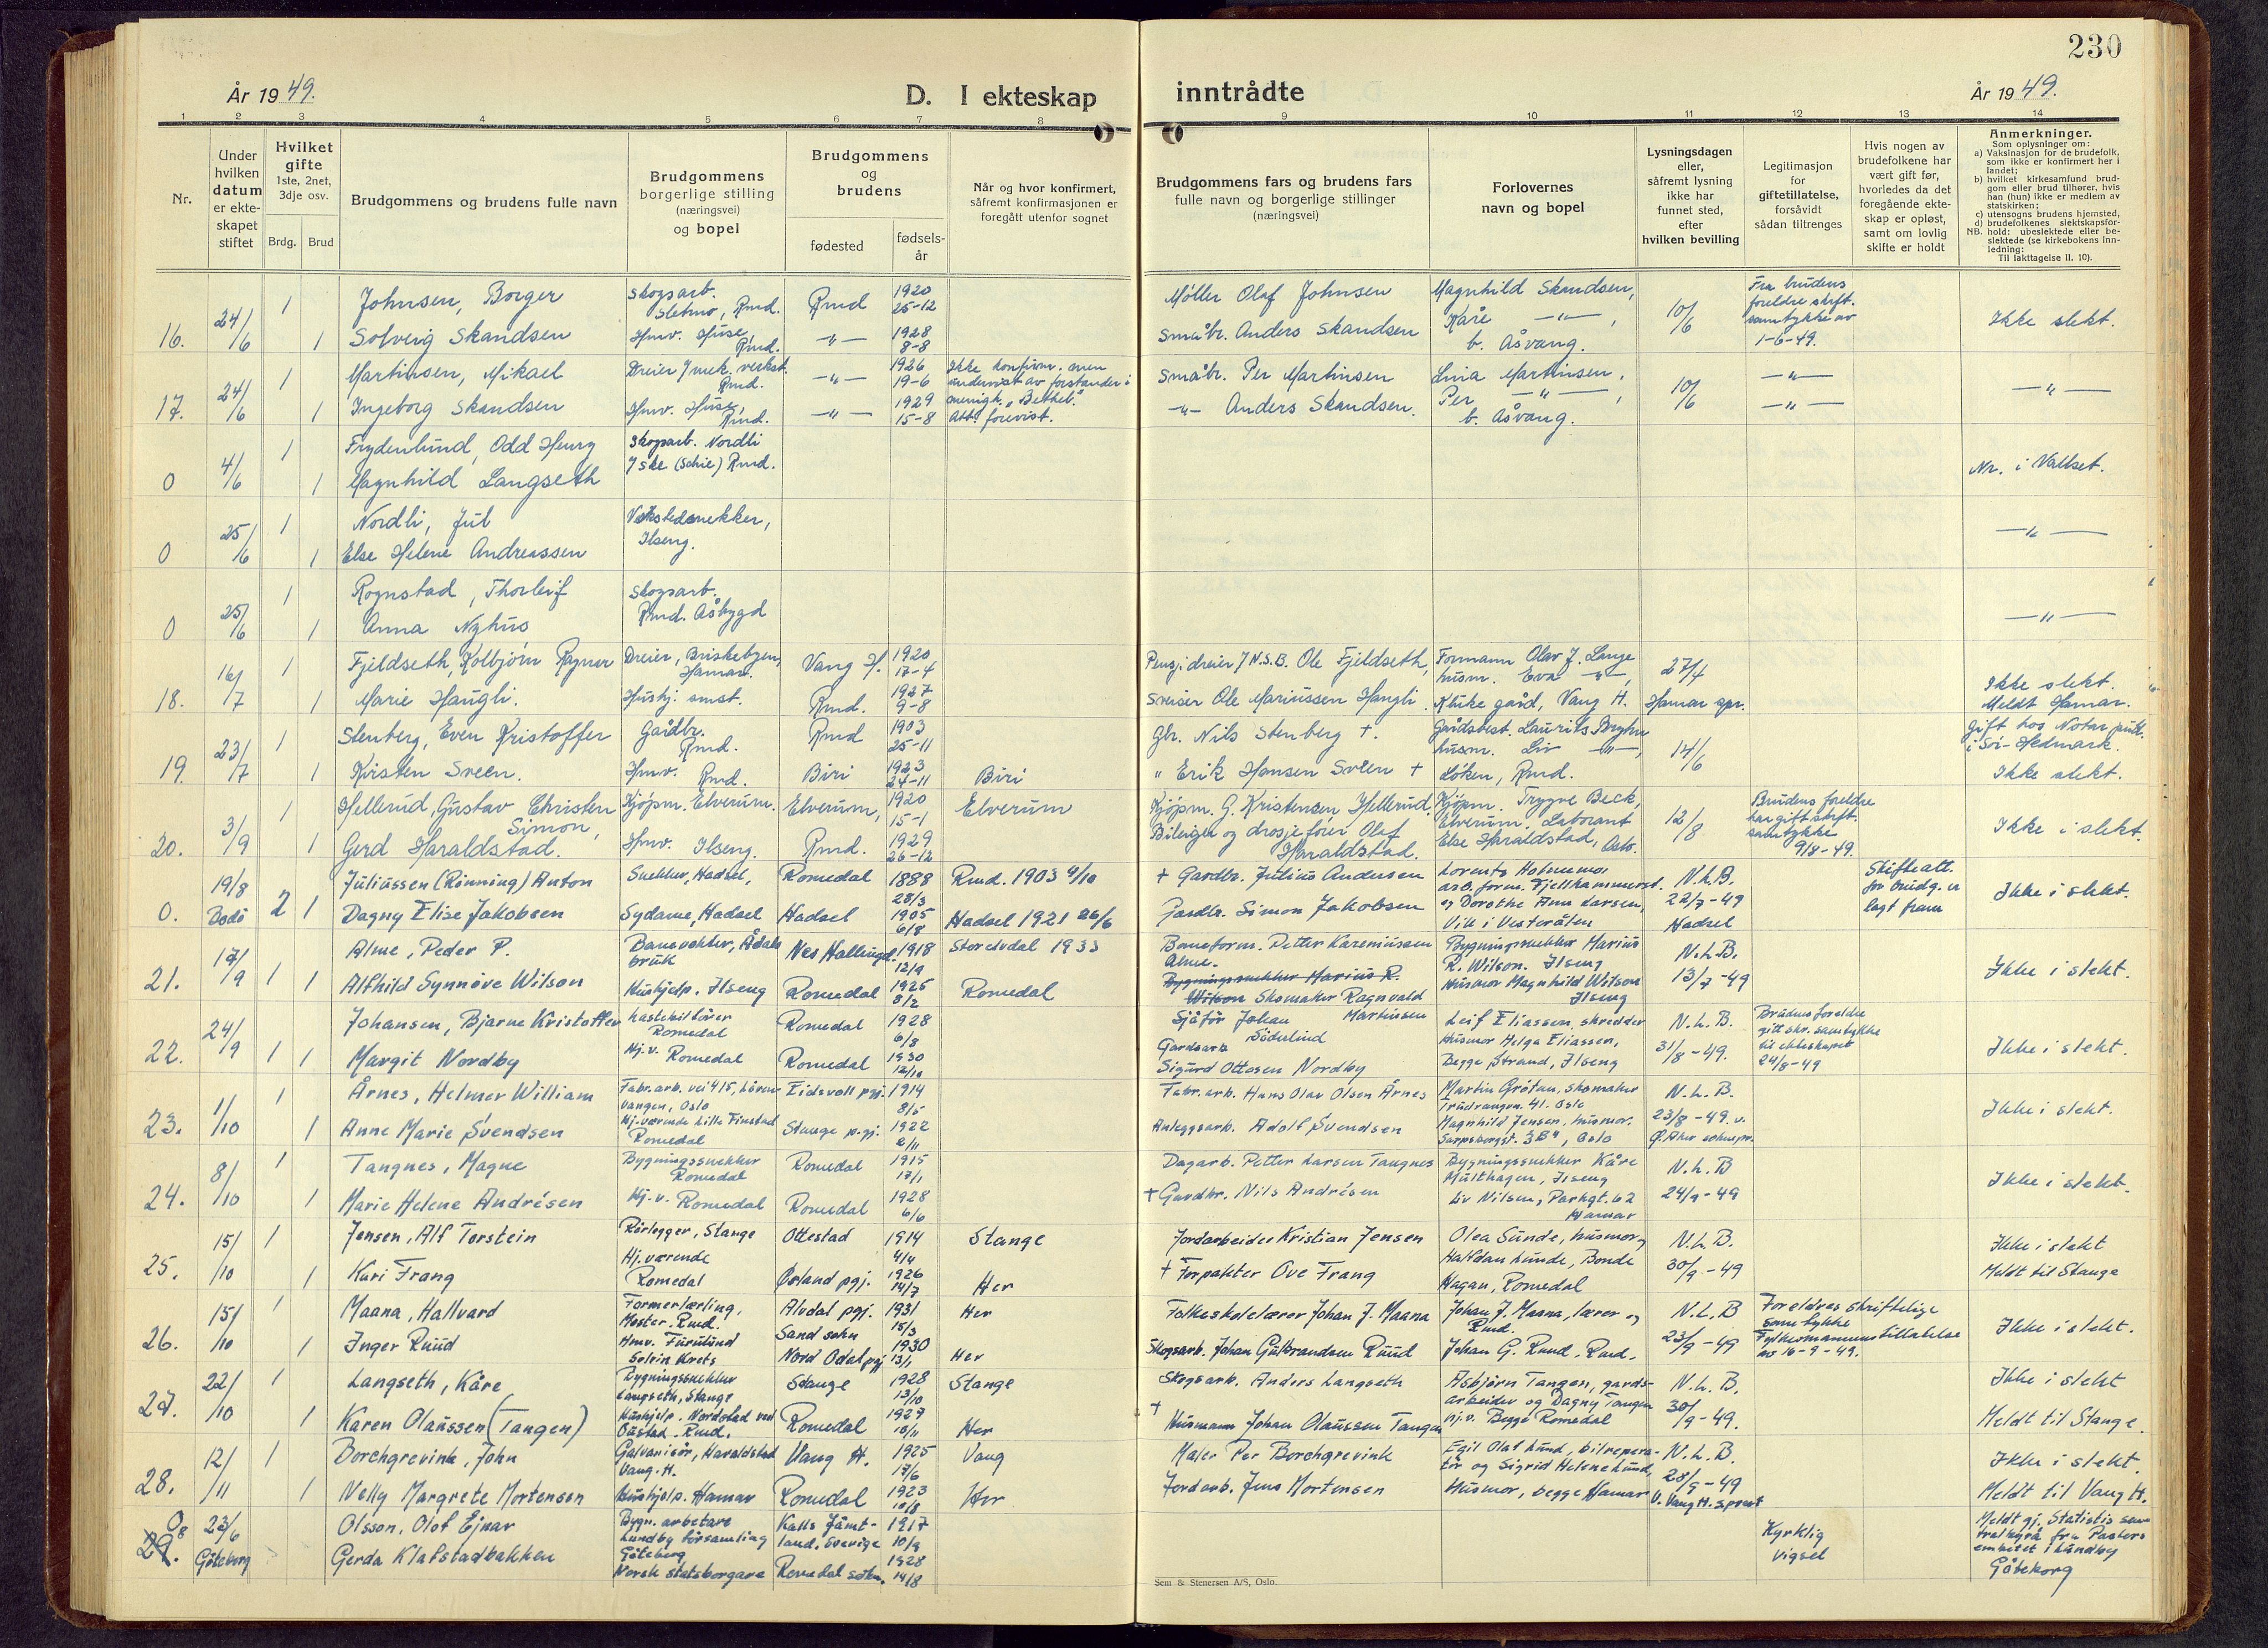 230
År 1949.
D. I ekteskap
inntrådte
År 1949.
1 2 3 4 5 6 7 8 9 10 11 12 13 14
Nr.
Under hvilken datum er ekteskapet stiftet
Hvilket gifte
1ste, 2net, 3dje osv.
Brdg. Brud
Brudgommens og brudens fulle navn
Brudgommens borgerlige stilling (næringsvei) og bopel
Brudgommens og brudens
fødested
fødselsår
Når og hvor konfirmert, såfremt konfirmasjonen er foregått utenfor sognet
Brudgommens fars og brudens fars fulle navn og borgerlige stillinger (næringsvei)
Forlovernes navn og bopel
Lysningsdagen eller, såfremt lysning ikke har funnet sted, efter hvilken bevilling
Legitimasjon for giftetillatelse, forsåvidt sådan tiltrenges
Hvis nogen av brudefolkene har vært gift før, hvorledes da det foregående ekteskap er opløst, samt om lovlig skifte er holdt
Anmerkninger.
Som oplysninger om:
a) Vaksinasjon for de brudefolk, som ikke er konfirmert her i landet;
b) hvilket kirkesamfund brudgom eller brud tilhører, hvis han (hun) ikke er medlem av statskirken;
c) utensogns brudens hjemsted,
d) brudefolkenes slektskapsforhold: ubeslektede eller beslektede (se kirkebokens innledning:
NB.
Til iakttagelse II. 10).
16. 24/6 1 Johnsen, Borger Skogsarb. Sletmo, Rmd. Rmd 1920 25-12 Møller Olaf Johnsen Magnhild Skandsen, 10/6 Fra brudens foreldre skrft. samtykke av 1-6-49. Ikke slekt.
1 Solveig Skandsen Hmv. Huse, Rmd. —"— 1928 8-8 Småbr. Anders Skandsen Kåre —"—, b. Åsvang.
17. 24/6 1 Martinsen, Mikael Dreier J mek. verkst. Rmd. —"— 1926 19-6 Ikke konfirm. men undervist av forstander i menigh. "Bethel". Att. forevist. Småbr. Per Martinsen Lina Martinsen, 10/6 —"— —"—
1 Ingeborg Skandsen Hmv. Huse, Rmd. —"— 1929 15-8 —"— Anders Skandsen. Per —"—, b. Åsvang. —"—
0 4/6 1 Frydenlund, Odd Henry Skogsarb. Nordli
1 Magnhild Langseth Rmd. Nr. i Vallset.
0 25/6 1 Nordli, Jul
1 Else Helene Andreassen Ilseng. —"—
0 25/6 1 Rognstad, Thorleif Skogsarb.
1 Anna Nyhus Rmd. Åsbygd —"—
18. 16/7 1 Fjeldseth, Kolbjørn Ragnar Dreier, Briskebyen, Hamar. Vang H. 1920 17-4 Pensj. dreier J N.S.B. Ole Fjeldseth, Formann Olav J. Lange 27/4
1 Marie Haugli. Hushj. smst. Rmd. 1927 9-8 Sveiser Ole Mariussen Haugli. husm. Eva —"—, gård, Vang H. Hamar Ikke slekt. Meldt Hamar.
19. 23/7 1 Stenberg, Even Kristoffer Gårdbr. Rmd. Rmd 1903 25-11 Gbr. Nils Stenberg †. Gårdsbest. Laurits 14/6 Gift hos Notar. publ. i Sør-Hedmark.
1 Kirsten Sveen. Hmv. Rmd. Biri 1923 27-11 Biri " Erik Hansen Sveen † husm. Liv —"—, Løken, Rmd. Ikke slekt.
20. 3/9 1 Hellerud, Gustav Christen Simon, Kjøpm. Elverum. Elverum, 1920 15-1 Elverum Kjøpm. G. Kristensen Hellerud. Kjøpm. Trygve Beck, 12/8 Brudens foreldre har gift skrft. samtykke 9/8-49. Ikke i slekt.
1 Gerd Haraldstad. Hmv. Ilseng. Rmd. 1929 26-12 Bileiger og drosjefører Olaf Haraldstad. Elverum. Laborant Else Haraldstad, Oslo.
0. 19/8 Bodö 2 Juliussen (Rønning) Anton Snekker, Hadsel, Romedal 1888 28/3 Rmd. 1903 4/10 † Gardbr. Julius Andersen Lorents Holmemo arb. form. Fjellhammerst. N.L.B. Skifteatt. for brudg. er lagt fram Ikke i slekt.
1 Dagny Elise Jakobsen Sydame, Hadsel Hadsel 1905 6/8 Hadsel 1921 26/6 Gardbr. Simon Jakobsen og Dorothe Anna Larsen, Vik i Vesterålen 22/7-49 Hadsel
21. 17/9 1 Alme, Peder P. Banevokter, Ådals bruk Nes Hallingd. 1918 12/9 Storelvdal 1933 Baneform. Petter Karenissen Alme. Bygningssnekker Marius R. Wilson. Ilseng N.L.B.
1 Alfhild Synnöve Wilson Hushjelp. Ilseng Romedal 1925 8/2 Romedal Bygningssnekker Marius R. Wilson Skomaker Ragnvald Martinsen Husmor Magnhild Wilson Ilseng 13/7-49 Ikke i slekt.
22. 24/9 1 Johansen, Bjarne Kristoffer Lastebilfører Romedal Romedal 1928 6/8 Sjåfør Johan Söderlund Leif Eliassen, skredder N.L.B. Brudens foreldre gitt skr. samtykke til ekteskapet 24/8-49 Ikke i slekt.
1 Margit Nordby Hj.v. Romedal Romedal 1930 12/10 Gardsarb. Sigurd Ottosen Nordby Husmor Helga Eliassen, Begge Strand, Ilseng 31/8-49.
23. 1/10 1 Årnes, Helmer William Fabr.arb. vei 415, Lören vangen, Oslo Eidsvoll pgj. 1914 8/5 Fabr.arb. Hans Olav Olsen Årnes Martin Gröten, skomaker N.L.B. Ikke i slekt.
1 Anne Marie Svendsen Hj.værende Lille Finstad Romedal Stange p.gj. 1922 2/11 Anleggsarb. Adolf Svendsen Magnhild Jensen, husmor. Sarpsborggt. 3B", Oslo 23/8-49. v. Ø. Aker sokneprest
24. 8/10 1 Tangnes, Magne Bygningssnekker Romedal Romedal 1915 17/1 Dagarb. Petter Larsen Tangnes Bygningssnekker Kåre Multhagen, Ilseng N.L.B Ikke i slekt.
1 Marie Helene Andrésen Hj.v. Romedal Romedal 1928 6/6 † Gardbr. Nils Andrésen Liv Nilsen, Parkgt. 62 Hamar 24/9-49
25. 15/10 1 Jensen, Alf Torstein Rørlegger, Stange Ottestad 1914 4/4 Stange Jordarbeider Kristian Jensen Olea Sunde, husmor, N.L.B. Ikke i slekt
1 Kari Frang Hj.værende Romedal Ørland pgj. 1926 14/7 Her † Forpakter Ove Frang Halfdan Lunde, Bonde Hagan, Romedal 30/9-49 Meldt til Stange
26. 15/10 1 Maana, Hallvard Formerlærling, Rmd. Alvdal pgj. 1931 15/3 Her Folkeskolelærer Johan J. Maana Johan J. Maana, lærer og Rmd. N.L.B Foreldres skriftelige samtykke Ikke i slekt.
1 Inger Ruud Hmv. Furulund Solvin Krets Sand sokn Nord Odal pgj 1930 13/1 Her Skogsarb. Johan Gulbrandsen Ruud Johan G. Ruud, Rmd. 23/9-49 Fylkesmannens tillatelse av 16-9-49.
27. 22/10 1 Langseth, Kåre Bygningssnekker Langseth, Stange Stange 1928 13/10 Stange Skogsarb. Anders Langseth Asbjörn Tangen, gardsarbeider og Dagny Tangen N.L.B. Ikke i slekt
1 Karen Olaussen (Tangen) Hushjelp. Nordstad ved Rmd. Romedal 1927 10/11 Her † Husmann Johan Olaussen Tangen Hj.v. Begge Romedal 30/9-49. Meldt til Stange.
28. 12/11 1 Borchgrevink, John Galvanisør, Haraldstad Vang. H. Vang H. 1925 17/6 Vang Maler Per Borchgrevink Egil Olaf Lund, bilreperatör og Sigrid Helene Lund, N.L.B. Ikke i slekt.
1 Nelly Margrete Mortensen Hushjelp. Hamar Romedal 1923 10/8 Her Jordarb. Jens Mortensen Husmor, begge Hamar 28/9-49 V. Vang H. sprest Meldt til Vang H.
29. 08 23/6 Göteborg Olsson, Olof Ejnar Bygn. arbetare Lundby församling Göteborg Kalls Jämtland, Sverige 1917 10/9 Kyrklig vigsel Meldt gj. Statistis sentralbyrå fra Pastorsembetet i Lundby Göteborg
Gerda Klafstadbakken Norsk statsborgare Romedal sokn. 1928 14/8
Sem & Stenersen A/S, Oslo.